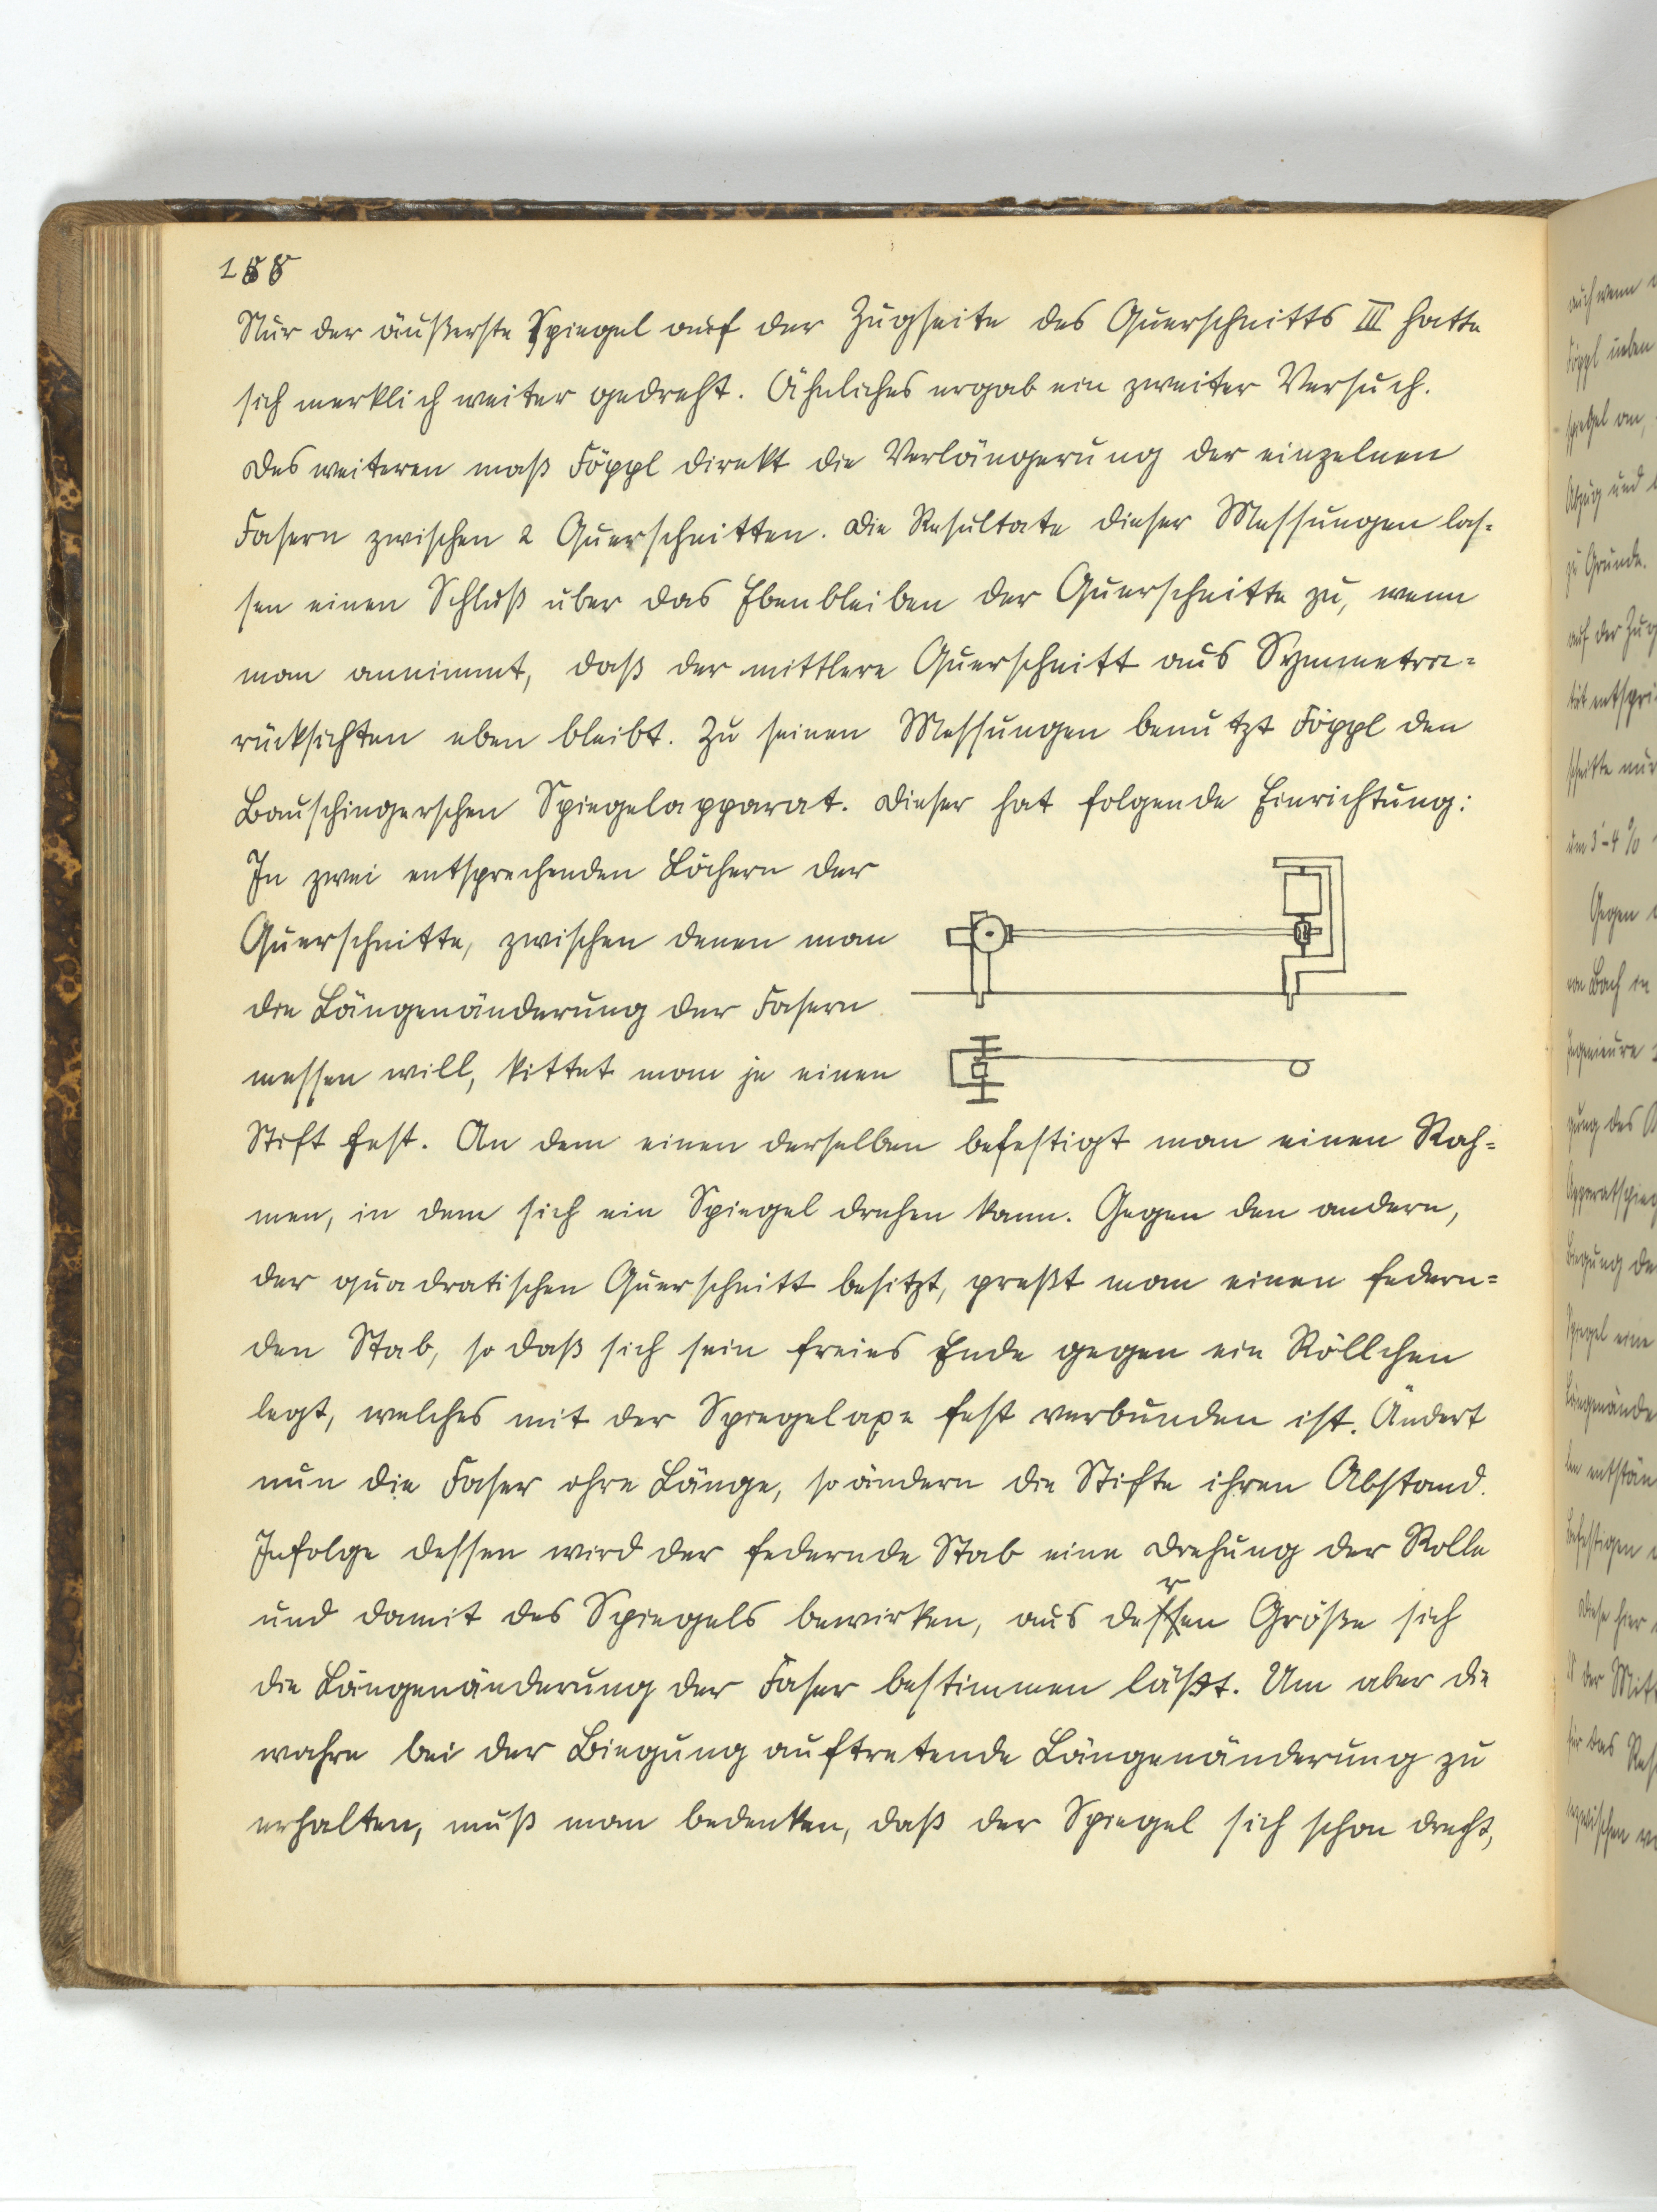 188
Nur der äußerste Spiegel auf der Zugseite des Querschnitts III hatte
sich merklich weiter gedreht. Ähnliches ergab ein zweiter Versuch.
Des weiteren maß Föppl direkt die Verlängerung der einzelnen
Fasern zwischen 2 Querschnitten. Die Resultate dieser Messungen las-
sen einen Schluß über das Ebenbleiben der Querschnitte zu, wenn
man annimmt, daß der mittlere Querschnitt aus Symmetrie-
rücksichten eben bleibt. Zu seinen Messungen benutzt Föppl den
Bauschingerschen Spiegelapparat. Dieser hat folgende Einrichtung:
In zwei entsprechenden Löchern der
Querschnitte, zwischen denen man
die Längenänderung der Fasern
messen will, kittet man je einen
Stift fest. An dem einen derselben befestigt man einen Rah-
men, in dem sich ein Spiegel drehen kann. Gegen den andern,
der quadratischen Querschnitt besitzt, preßt man einen federn-
den Stab, so daß sich sein freies Ende gegen ein Röllchen
legt, welches mit der Spiegelaxe fest verbunden ist. Ändert
nun die Faser ihre Länge, so ändern die Stifte ihren Abstand.
Infolge dessen wird der federnde Stab eine Drehung der Rolle
und damit des Spiegels bewirken, aus deren Größe sich
die Längenänderung der Faser bestimmen läßt. Um aber die
wahre bei der Biegung auftretende Längenänderung zu
erhalten, muß man bedenken, daß der Spiegel sich schon dreht,
auch wenn
Föppl
spiegel an,
Abzug und
zu Grunde.
auf der Zug
schnitte nur
um 3-4 %
Gegen
von Bach in
Ingenieure
gung des
Apparatspieg
Biegung de
Spiegel eine
Längenände
befestigen
Diese hier
der Mitt
für das Res
inzwischen